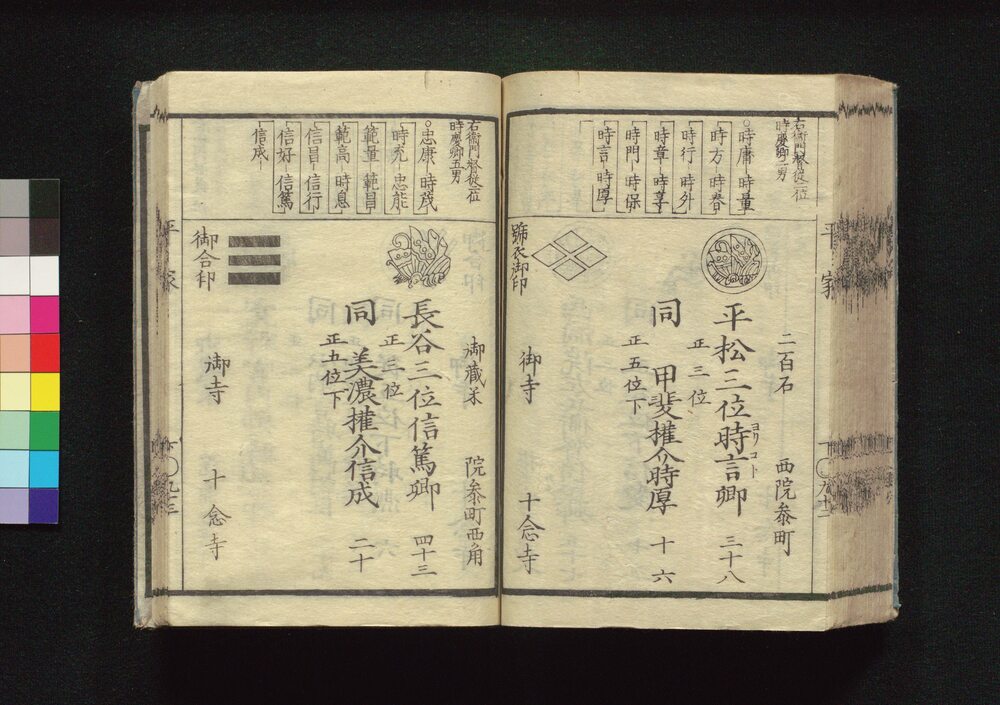 右衛門督従二位
時慶卿二男
時庸 時量
時方 時春
時行 時外
時章 時升
時門 時保
時言 時厚
二百石 西院参町
平松三位時言卿 三十八
ヨリコト
正三位
同 甲斐権介時厚 十六
正五位下
御寺 十念寺
号衣御印
平家
右衛門督従二位
時慶卿五男
忠康 時茂
時充 忠能
範量 範昌
範高 時息
信昌 信行
信好 信篤
信成
御蔵米 院参町西角
長谷三位信篤卿 四十三
正三位
同 美濃権介信成 二十
正五位下
御合印
御寺 十念寺
平家